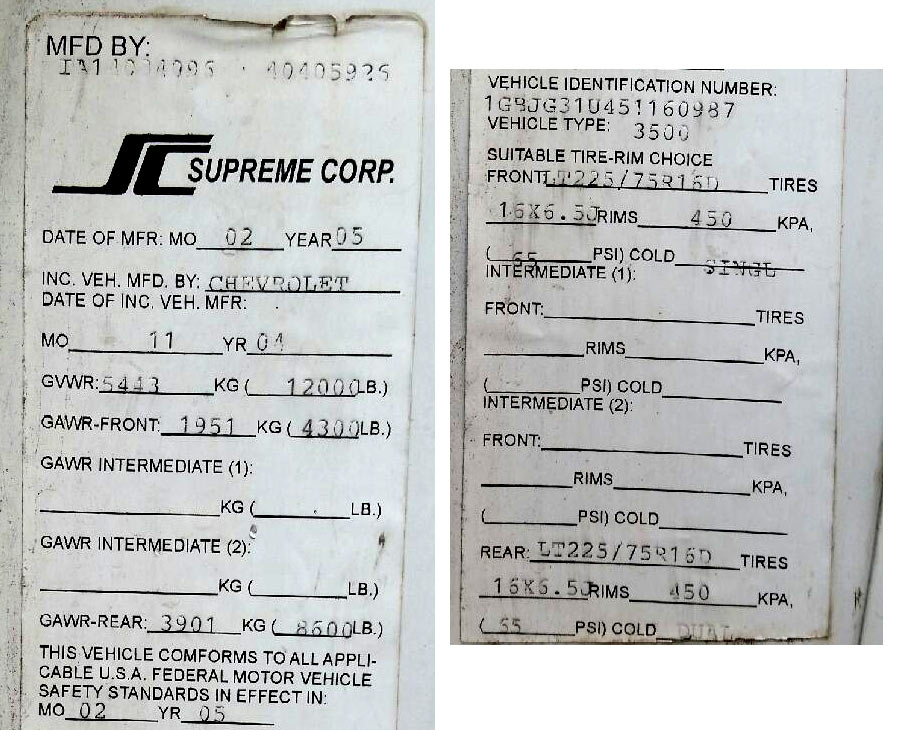 MFD BY:
40405926
SUPREME CORP.
DATE OF MFR: MO 02 YEAR 05
INC. VEH. MFD. BY: CHEVROLET
DATE OF INC. VEH. MFR:
MO 11 YR 04
GVWR: 5443 KG ( 12000 LB.)
GAWR-FRONT: 1951 KG ( 4300 LB.)
GAWR INTERMEDIATE (1):
KG ( LB.)
GAWR INTERMEDIATE (2):
KG ( LB.)
GAWR-REAR: 3901 KG ( 8600 LB.)
THIS VEHICLE COMFORMS TO ALL APPLI-
CABLE U.S.A. FEDERAL MOTOR VEHICLE
SAFETY STANDARDS IN EFFECT IN:
MO 02 YR 05
VEHICLE IDENTIFICATION NUMBER:
1GBJG31U451160987
VEHICLE TYPE: 3500
SUITABLE TIRE-RIM CHOICE
FRONT: LT225/75R16D TIRES
16X6.5J RIMS 450 KPA,
( 65 PSI) COLD SINGL
INTERMEDIATE (1):
FRONT: TIRES
RIMS KPA,
( PSI) COLD
INTERMEDIATE (2):
FRONT: TIRES
RIMS KPA,
( PSI) COLD
REAR: LT225/75R16D TIRES
16X6.5J RIMS 450 KPA,
( PSI) COLD DUAL